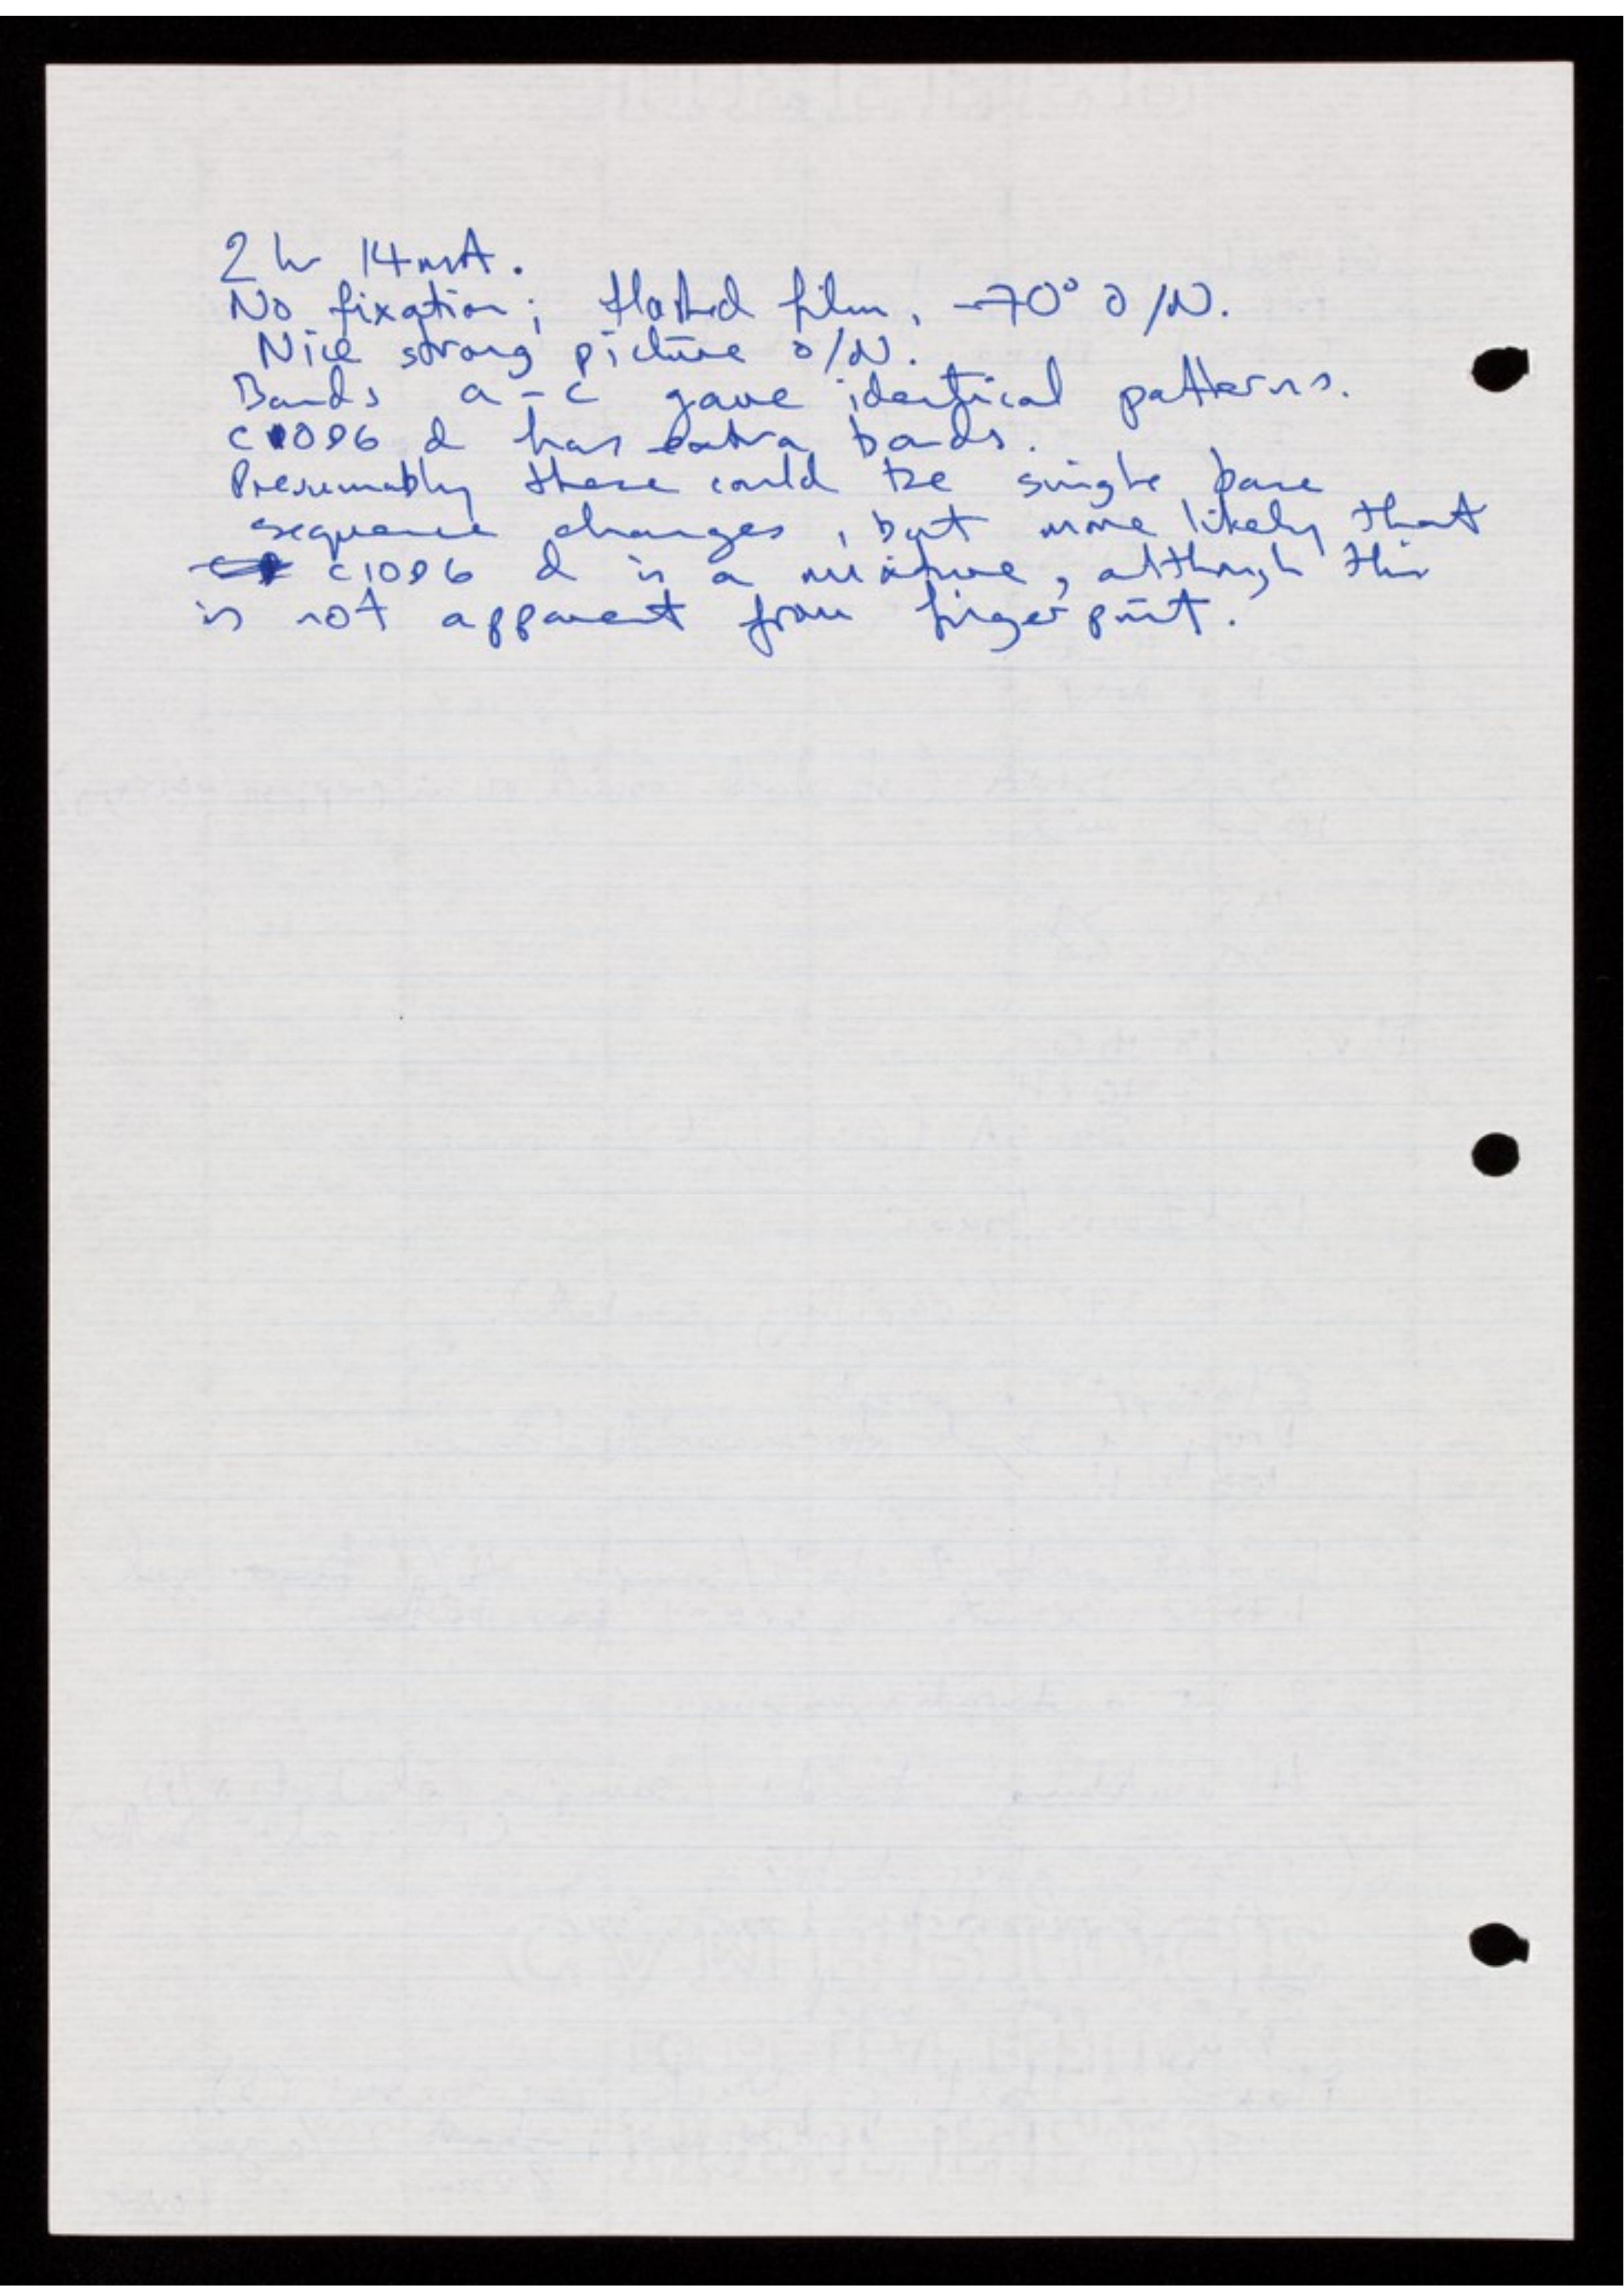 2 hr 14mA.
No fixation; flashed film, -70° O/N.
Nice strong picture O/N.
Bands a-c gave identical patterns.
c1086 d has extra bands.
Presumably these could be single base
sequence changes, but more likely that
c1086 d is a mixture, although this
is not apparent from fingerprint.